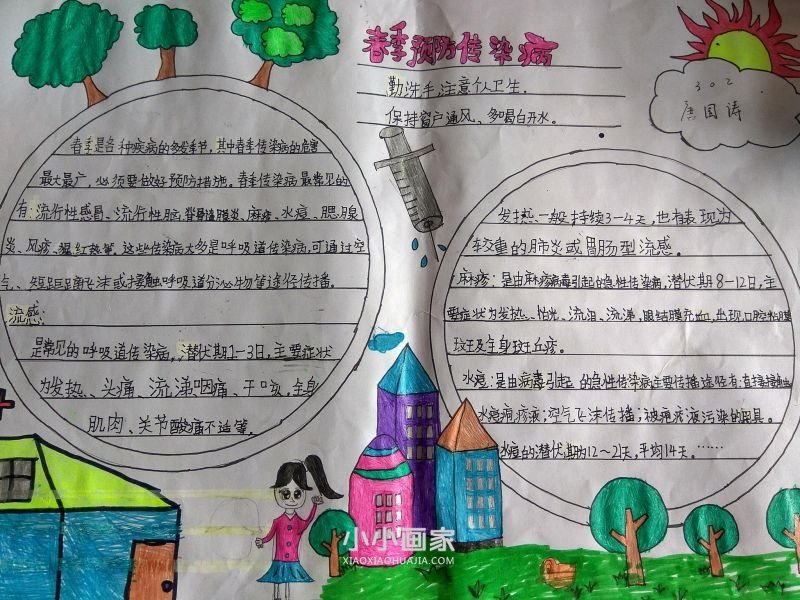 春季预防传染病
勤洗手,注意个人卫生.
保持窗户通风、多喝白开水。
302
唐国涛
春季是各种疾病的多发季节,其中春季传染病的危害
最大最广,必须要做好预防措施。春季传染病最常见的
有:流行性感冒、流行性脑脊髓膜炎、麻疹、水痘、腮腺
炎、风疹、猩红热等,这些传染病大多是呼吸道传染病,可通过空
气、短距离飞沫或接触呼吸道分泌物等途径传播。
流感:
是常见的呼吸道传染病,潜伏期1-3日,主要症状
为发热、头痛、流涕咽痛、干咳,全身
肌肉、关节酸痛不适等。
发热一般持续3-4天,也有表现为
较重的肺炎或胃肠型流感。
麻疹:是由麻疹病毒引起的急性传染病,潜伏期8-12日,主
要症状为发热、怕光、流泪、流涕,眼结膜充血,出现口腔粘膜
斑及全身斑丘疹。
水痘:是由病毒引起的急性传染病主要传播途径有:直接接触
水痘疱疹液;空气飞沫传播;被疱疹液污染的用具。
水痘的潜伏期为12~21天,平均14天。……
小小画家
XIAOXIAOHUAJIA.COM